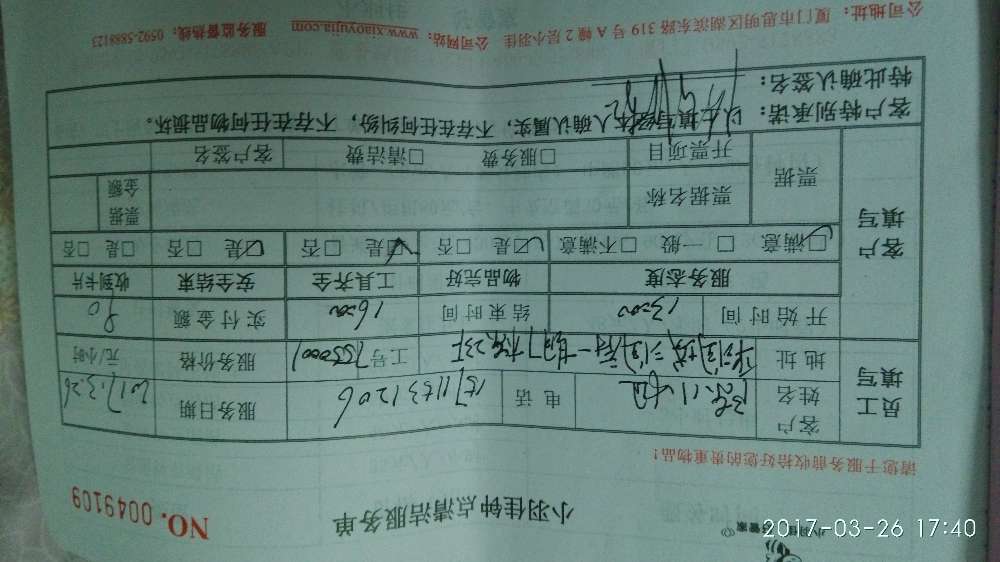 小羽佳钟点清洁服务单
NO. 0049109
请您于服务前收拾好您的贵重物品!
员工填写
客户姓名
电话
服务日期 2017.3.26
地址
工号
服务价格 元/小时
开始时间 1300
结束时间 1600
实付金额 90
客户填写
服务态度 物品完好 工具齐全 安全结束 收到卡片
☑满意 □一般 □不满意 ☑是 □否 ☑是 □否 ☑是 □否 □是 □否
票据
票据名称
票据金额
开票项目 □服务费 □清洁费 客户签名
客户特别承诺: 以上填写经本人确认属实, 不存在任何纠纷, 不存在任何物品损坏。
特此确认签名:
公司地址: 厦门市思明区湖滨东路 319 号 A 幢 2 层小羽佳 公司网站: www.xiaoyujia.com 服务监督热线: 0592-5888123
2017-03-26 17:40